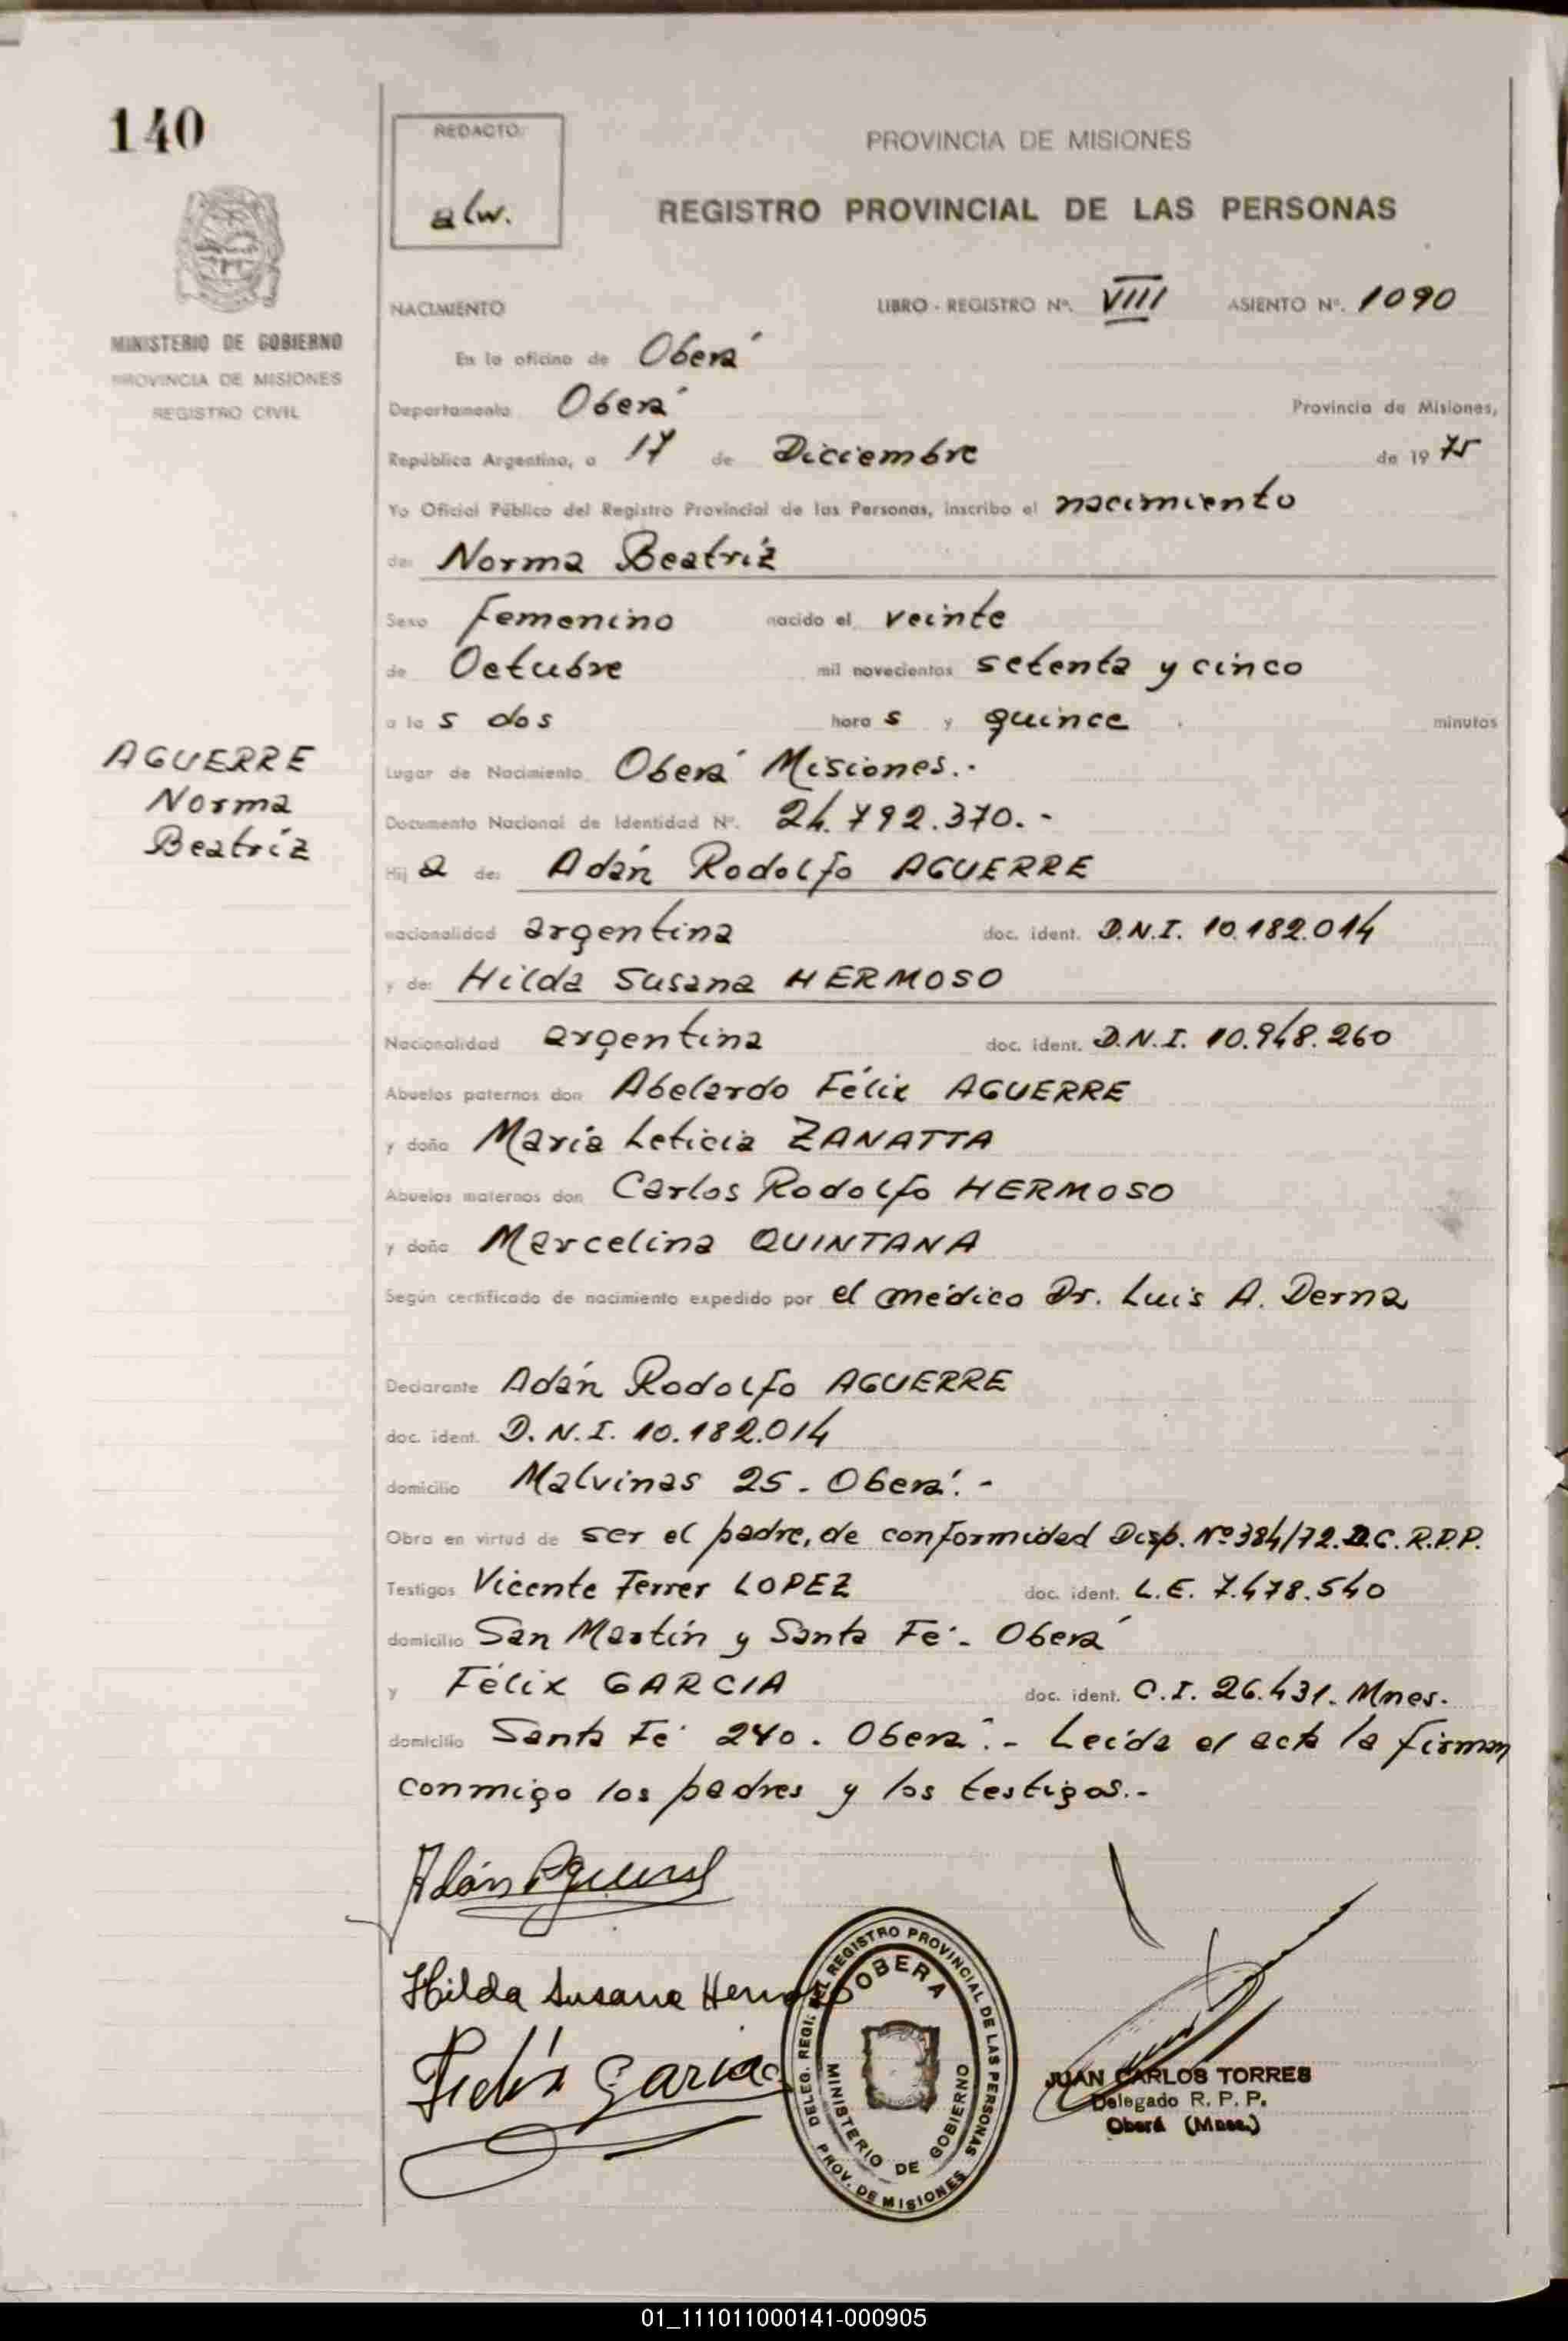 140
REDACTO:
alw.
PROVINCIA DE MISIONES
REGISTRO PROVINCIAL DE LAS PERSONAS
MINISTERIO DE GOBIERNO
PROVINCIA DE MISIONES
REGISTRO CIVIL
NACIMIENTO LIBRO - REGISTRO Nº. VIII ASIENTO Nº. 1090
En la oficina de Oberá
Departamento Oberá Provincia de Misiones,
República Argentina, a 17 de Diciembre de 19 75
Yo Oficial Público del Registro Provincial de las Personas, inscribo el nacimiento
de: Norma Beatríz
Sexo Femenino nacido el veinte
de Octubre mil novecientos setenta y cinco
a la s dos hora s y quince minutos
AGUERRE
Norma
Beatríz
Lugar de Nacimiento Oberá Misiones.-
Documento Nacional de Identidad Nº. 24.792.370.-
Hij a de: Adán Rodolfo AGUERRE
nacionalidad argentina doc. ident. D.N.I. 10.182.014
y de: Hilda Susana HERMOSO
Nacionalidad argentina doc. ident. D.N.I. 10.948.260
Abuelos paternos don Abelardo Félix AGUERRE
y doña María Leticia ZANATTA
Abuelos maternos don Carlos Rodolfo HERMOSO
y doña Marcelina QUINTANA
Según certificado de nacimiento expedido por el médico Dr. Luis A. Derna
Declarante Adán Rodolfo AGUERRE
doc. ident. D.N.I. 10.182.014
domicilio Malvinas 25 - Oberá.-
Obra en virtud de ser el padre, de conformidad Disp. Nº 384/72.D.G.R.P.P.
Testigos Vicente Ferrer LOPEZ doc. ident. L.E. 7.478.540
domicilio San Martín y Santa Fé - Oberá
y Félix GARCIA doc. ident. C.I. 26.431. Mnes.
domicilio Santa Fé 240 - Oberá.- Leída el acta la firman
conmigo los padres y los testigos.-
Adán Aguerre
Hilda Susana Hermoso
Felix Garcia
DELEG. REGI. DEL REGISTRO PROVINCIAL DE LAS PERSONAS
OBERA
MINISTERIO DE GOBIERNO
PROV. DE MISIONES
JUAN CARLOS TORRES
Delegado R. P. P.
Oberá (Mnes.)
01_111011000141-000905